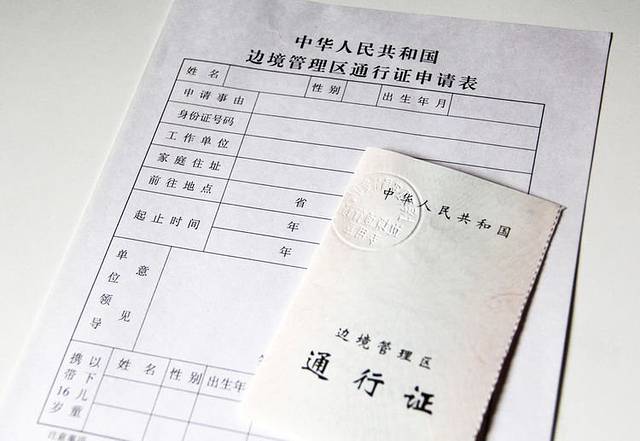 中华人民共和国
边境管理区通行证申请表
姓 名
性别
出生年月
申请事由
身份证号码
工作单位
家庭住址
前往地点
省
起止时间
年
年
单位领导
意见
携带16岁
以下儿童
姓 名
性别
出生年
中华人民共和国
边境管理区
通行证